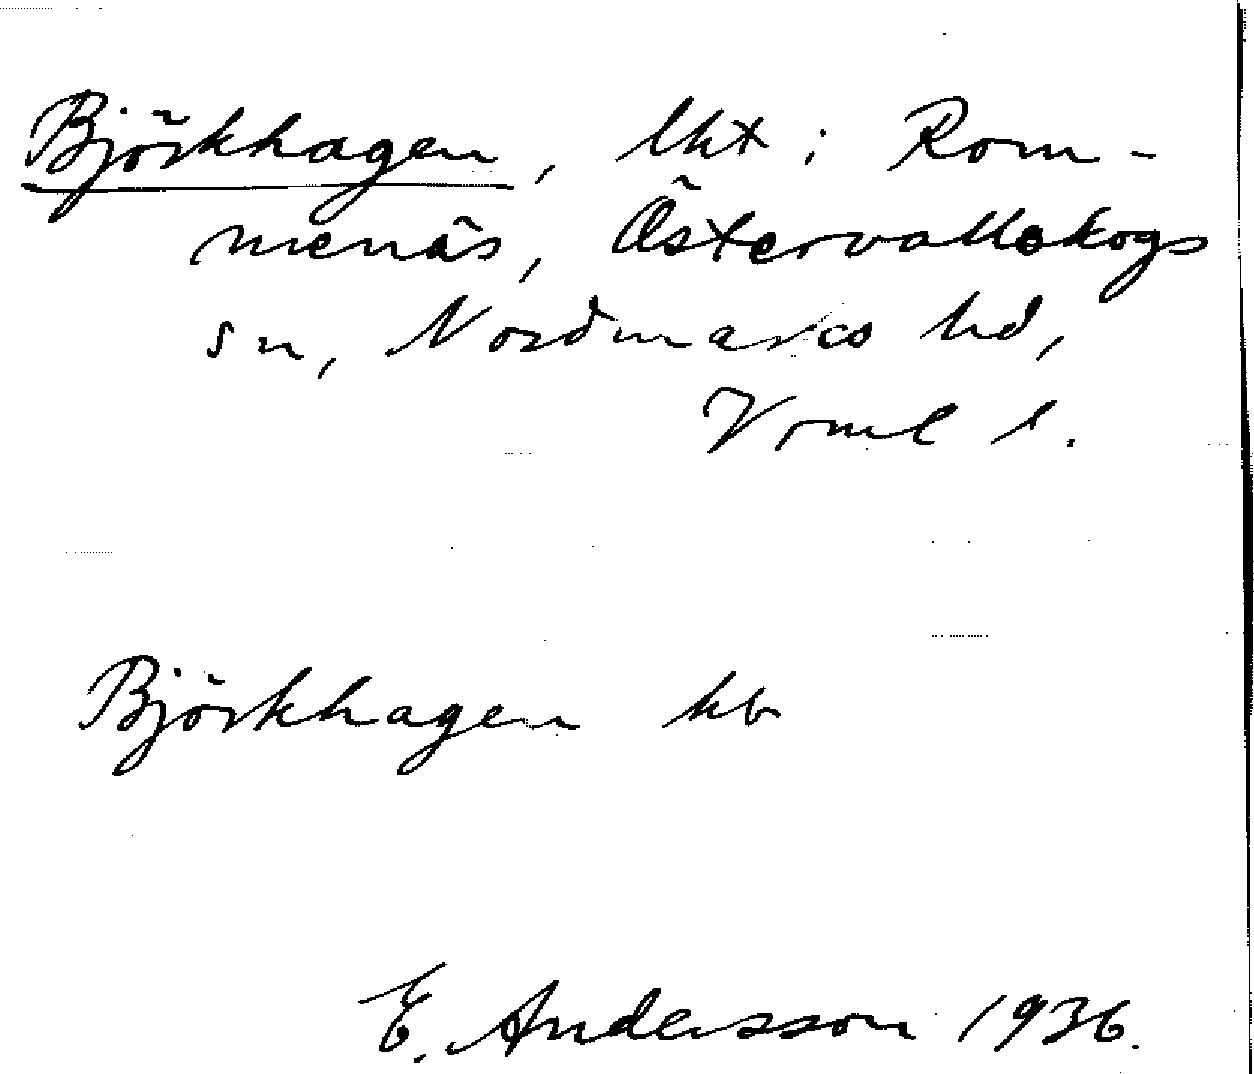 Björkhagen, lht i Rom-
menäs, Östervallskogs
sn, Nordmarks hd,
Vrml l.
Björkhagen kb
E. Andersson 1936.